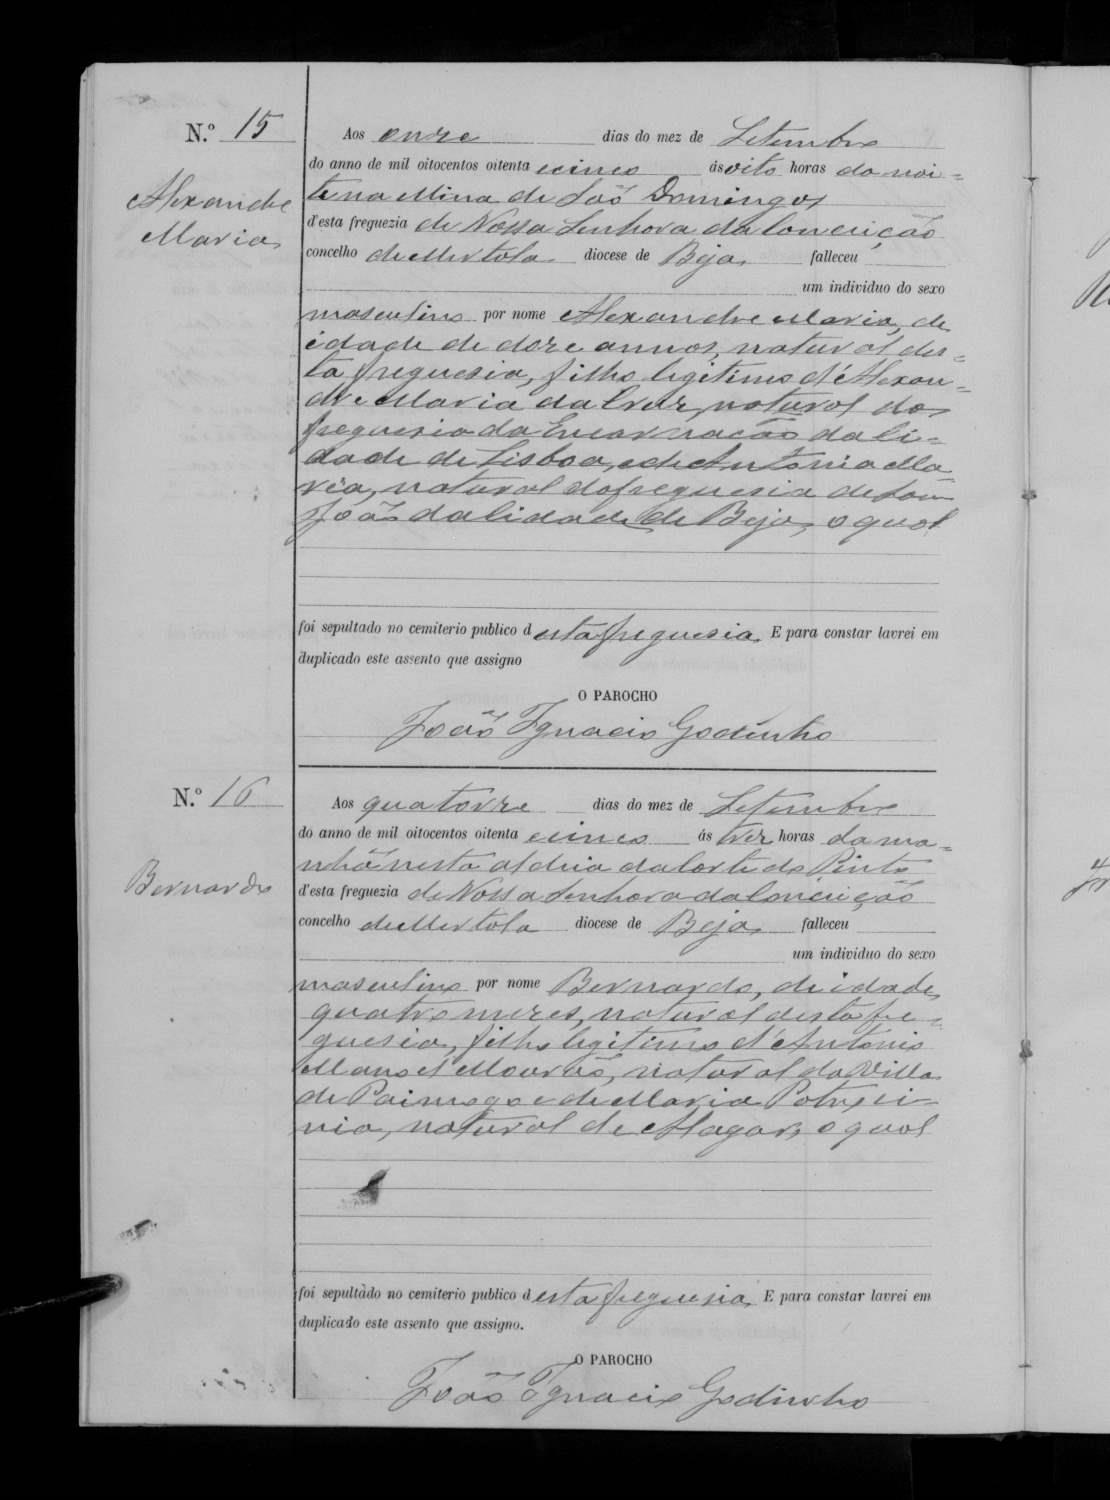 N.º 15
Alexandre
Maria
Aos onze dias do mez de Setembro
do anno de mil oitocentos oitenta e cinco ás oito horas da noi=
te na Mina de São Domingos
d'esta freguezia de Nossa Senhora da Conceição
concelho de Mertola diocese de Beja falleceu
um individuo do sexo
masculino por nome Alexandre Maria, de
idade de doze annos, natural des=
ta freguesia, filho legitimo d'Alexan=
dre Maria da Cruz, natural da
freguesia da Encarnacão da Ci=
dade de Lisboa, e de Antonia Ma
ria, natural da freguesia de São
João da Cidade de Beja, o qual
foi sepultado no cemiterio publico d esta freguesia. E para constar lavrei em
duplicado este assento que assigno
O PAROCHO
João Ignacio Godinho
N.º 16
Bernardo
Aos quatorze dias do mez de Setembro
do anno de mil oitocentos oitenta e cinco ás trez horas da ma=
nhã nesta aldeia da Corte do Pinto
d'esta freguezia de Nossa Senhora da Conceição
concelho de Mertola diocese de Beja falleceu
um individuo do sexo
masculino por nome Bernardo, de idade
quatro mezes, natural desta fre=
guesia, filho legitimo d'Antonio
Manoel Mourão, natural da Villa
de Paimogo e de Maria Patroci
nia, natural de, o qual
foi sepultado no cemiterio publico d esta freguesia. E para constar lavrei em
duplicado este assento que assigno.
O PAROCHO
João Ignacio Godinho